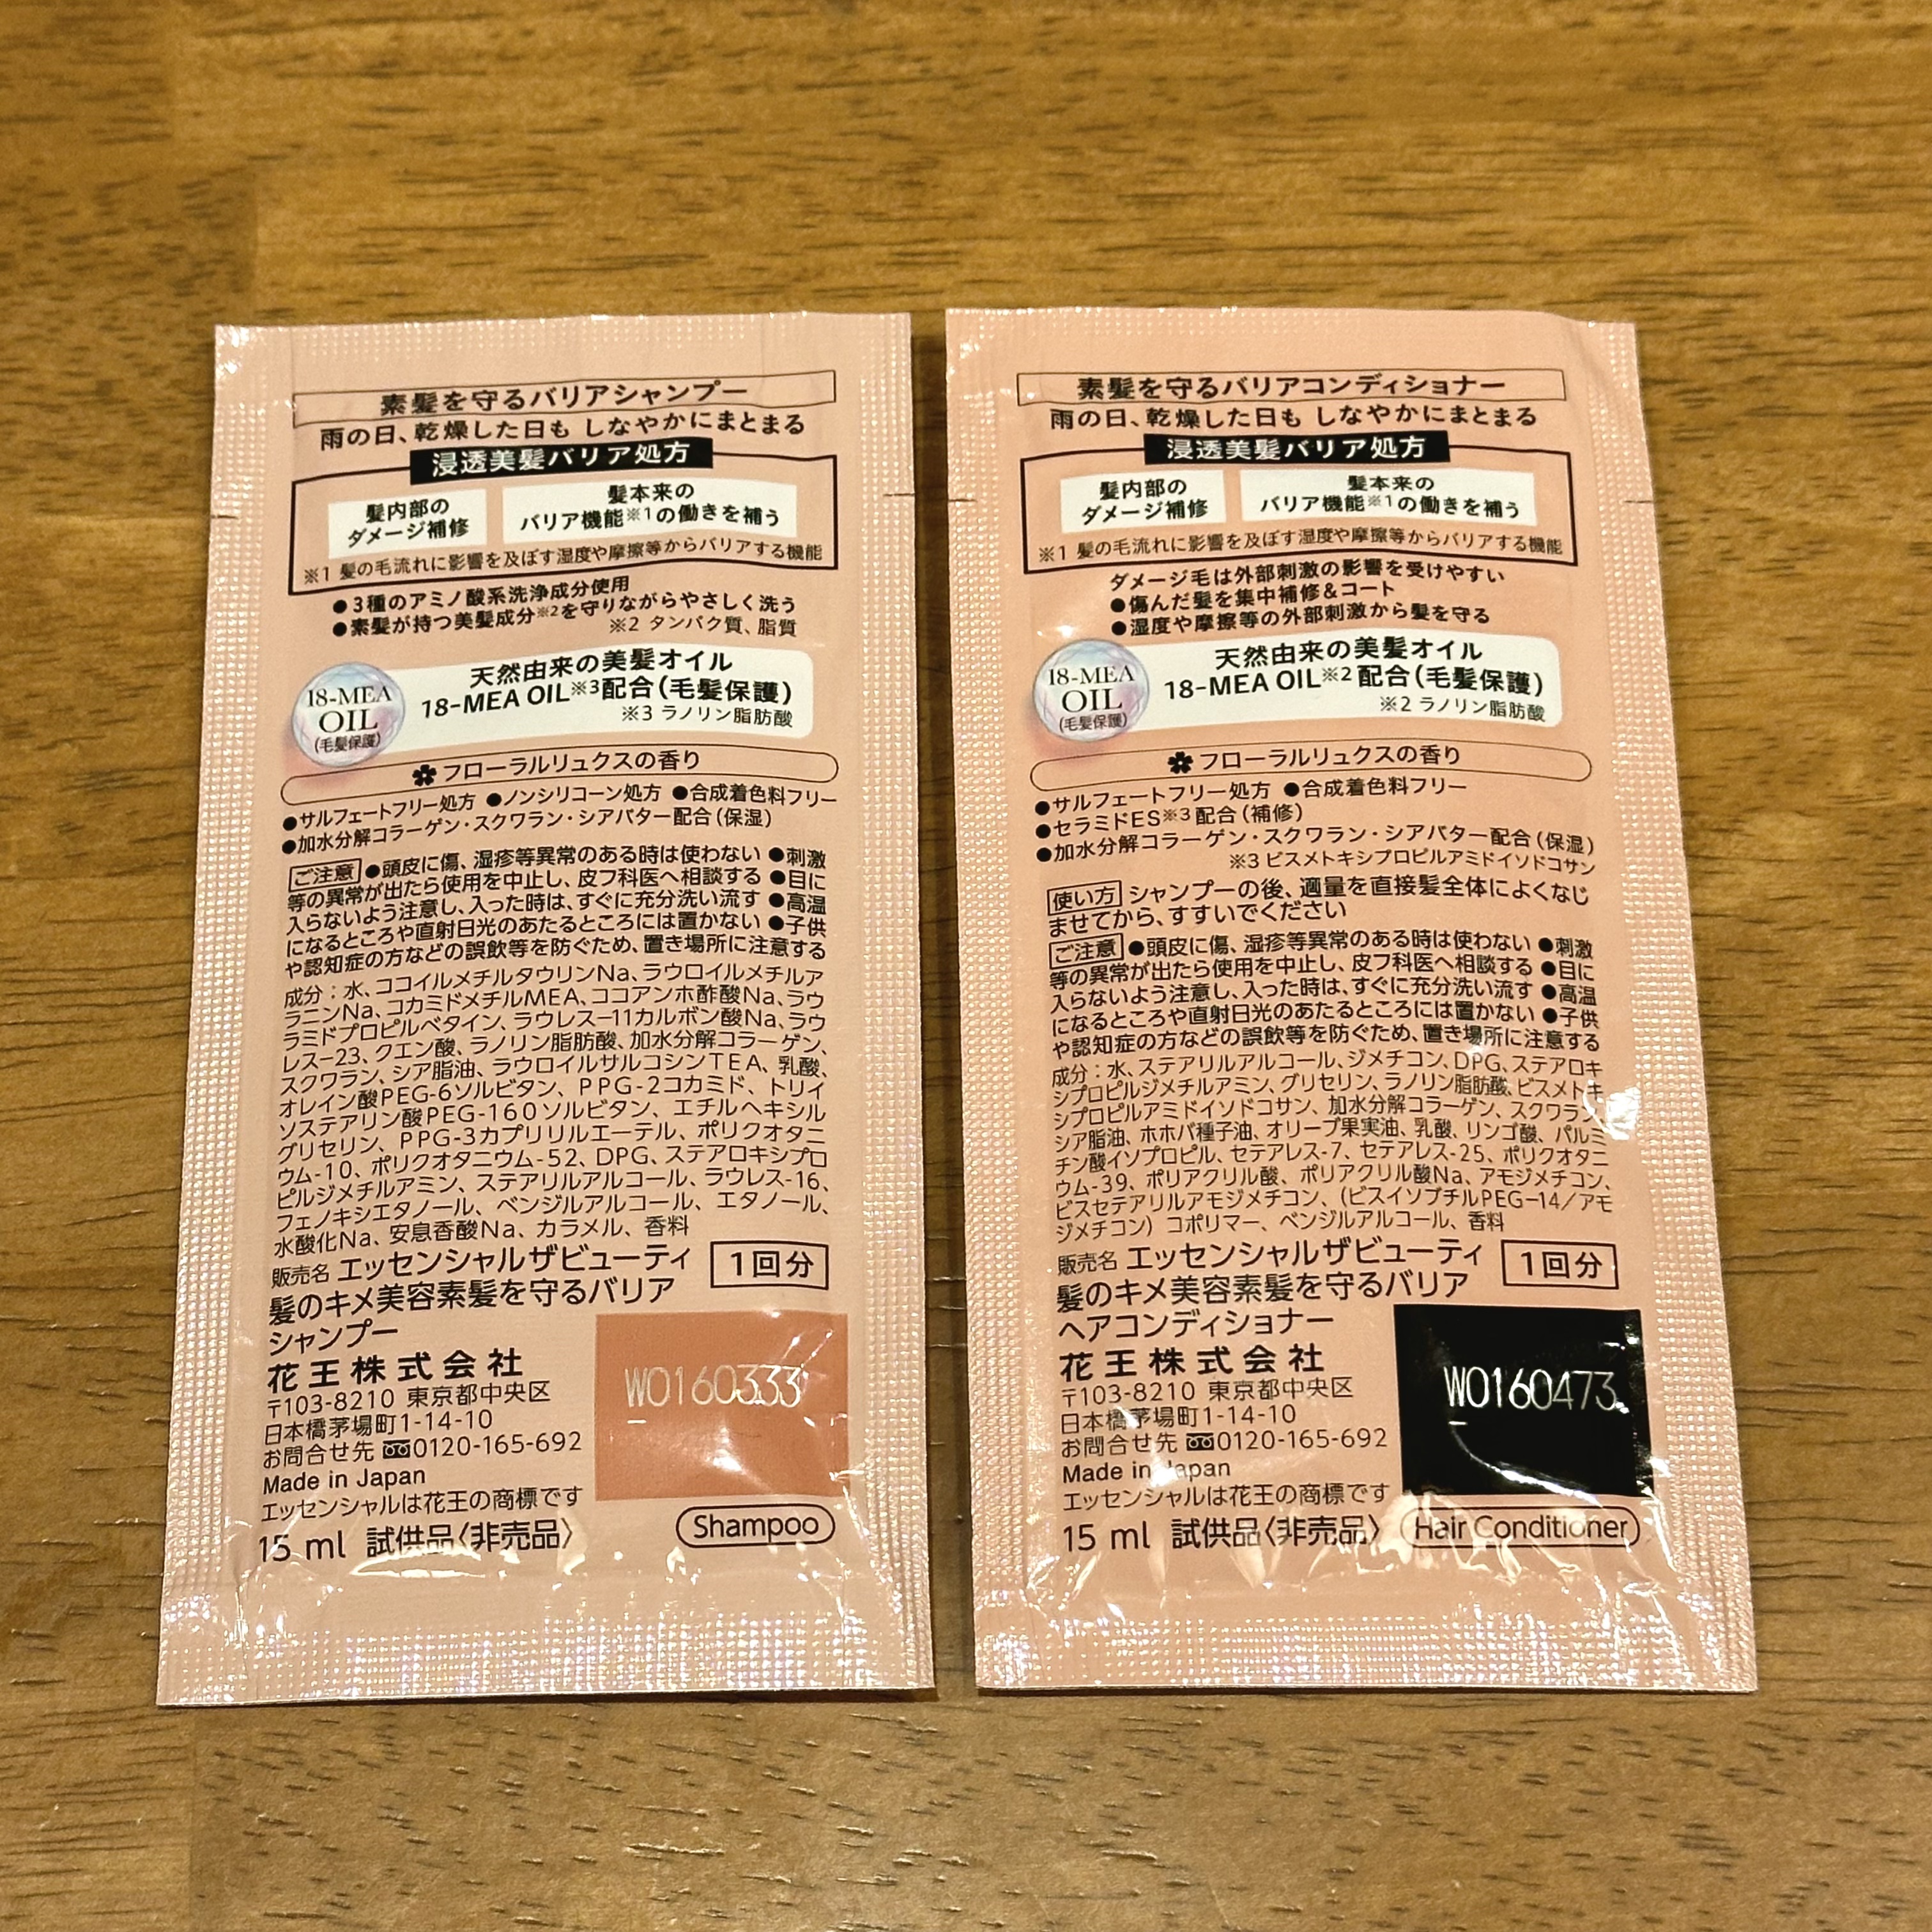 素髪を守るバリアシャンプー
雨の日、乾燥した日も しなやかにまとまる
浸透美髪バリア処方
髪内部の
ダメージ補修
髪本来の
バリア機能※1の働きを補う
※1 髪の毛流れに影響を及ぼす湿度や摩擦等からバリアする機能
●3種のアミノ酸系洗浄成分使用
●素髪が持つ美髪成分※2を守りながらやさしく洗う
※2 タンパク質、脂質
18-MEA
OIL
(毛髪保護)
天然由来の美髪オイル
18-MEA OIL※3配合(毛髪保護)
※3 ラノリン脂肪酸
フローラルリュクスの香り
●サルフェートフリー処方 ●ノンシリコーン処方 ●合成着色料フリー
●加水分解コラーゲン・スクワラン・シアバター配合(保湿)
ご注意 ●頭皮に傷、湿疹等異常のある時は使わない ●刺激
等の異常が出たら使用を中止し、皮フ科医へ相談する ●目に
入らないよう注意し、入った時は、すぐに充分洗い流す ●高温
になるところや直射日光のあたるところには置かない ●子供
や認知症の方などの誤飲等を防ぐため、置き場所に注意する
成分：水、ココイルメチルタウリンNa、ラウロイルメチルア
ラニンNa、コカミドメチルMEA、ココアンホ酢酸Na、ラウ
ラミドプロピルベタイン、ラウレス-11カルボン酸Na、ラウ
レス-23、クエン酸、ラノリン脂肪酸、加水分解コラーゲン、
スクワラン、シア脂油、ラウロイルサルコシンTEA、乳酸、
オレイン酸PEG-6ソルビタン、PPG-2コカミド、トリイ
ソステアリン酸PEG-160ソルビタン、エチルヘキシル
グリセリン、PPG-3カプリリルエーテル、ポリクオタニ
ウム-10、ポリクオタニウム-52、DPG、ステアロキシプロ
ピルジメチルアミン、ステアリルアルコール、ラウレス-16、
フェノキシエタノール、ベンジルアルコール、エタノール、
水酸化Na、安息香酸Na、カラメル、香料
販売名 エッセンシャルザビューティ
髪のキメ美容素髪を守るバリア
シャンプー
1回分
花王株式会社
〒103-8210 東京都中央区
日本橋茅場町1-14-10
お問合せ先 0120-165-692
Made in Japan
エッセンシャルは花王の商標です
15 ml 試供品〈非売品〉
W0160333
Shampoo
素髪を守るバリアコンディショナー
雨の日、乾燥した日も しなやかにまとまる
浸透美髪バリア処方
髪内部の
ダメージ補修
髪本来の
バリア機能※1の働きを補う
※1 髪の毛流れに影響を及ぼす湿度や摩擦等からバリアする機能
ダメージ毛は外部刺激の影響を受けやすい
●傷んだ髪を集中補修&コート
●湿度や摩擦等の外部刺激から髪を守る
18-MEA
OIL
(毛髪保護)
天然由来の美髪オイル
18-MEA OIL※2配合(毛髪保護)
※2 ラノリン脂肪酸
フローラルリュクスの香り
●サルフェートフリー処方 ●合成着色料フリー
●セラミドES※3配合(補修)
●加水分解コラーゲン・スクワラン・シアバター配合(保湿)
※3 ビスメトキシプロピルアミドイソドコサン
使い方 シャンプーの後、適量を直接髪全体によくなじ
ませてから、すすいでください
ご注意 ●頭皮に傷、湿疹等異常のある時は使わない ●刺激
等の異常が出たら使用を中止し、皮フ科医へ相談する ●目に
入らないよう注意し、入った時は、すぐに充分洗い流す ●高温
になるところや直射日光のあたるところには置かない ●子供
や認知症の方などの誤飲等を防ぐため、置き場所に注意する
成分：水、ステアリルアルコール、ジメチコン、DPG、ステアロキ
シプロピルジメチルアミン、グリセリン、ラノリン脂肪酸、ビスメトキ
シプロピルアミドイソドコサン、加水分解コラーゲン、スクワラン、
シア脂油、ホホバ種子油、オリーブ果実油、乳酸、リンゴ酸、パルミ
チン酸イソプロピル、セテアレス-7、セテアレス-25、ポリクオタニ
ウム-39、ポリアクリル酸、ポリアクリル酸Na、アモジメチコン、
ビスセテアリルアモジメチコン、(ビスイソブチルPEG-14／アモ
ジメチコン)コポリマー、ベンジルアルコール、香料
販売名 エッセンシャルザビューティ
髪のキメ美容素髪を守るバリア
ヘアコンディショナー
1回分
花王株式会社
〒103-8210 東京都中央区
日本橋茅場町1-14-10
お問合せ先 0120-165-692
Made in Japan
エッセンシャルは花王の商標です
15 ml 試供品〈非売品〉
W0160473
Hair Conditioner